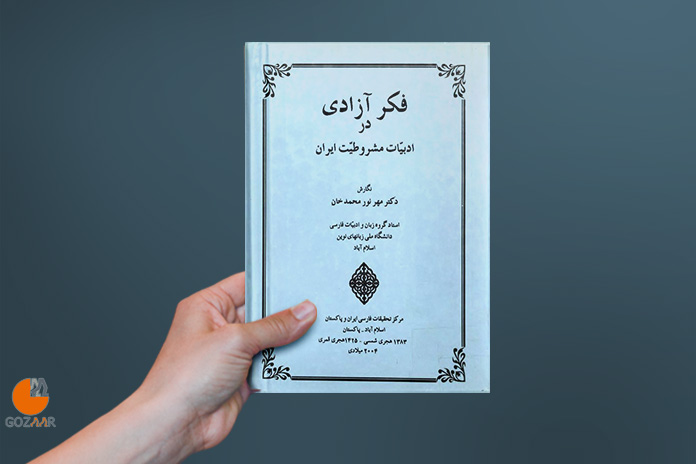 فکر آزادی
در
ادبیّات مشروطیّت ایران
نگارش
دکتر مهر نور محمد خان
استاد گروه زبان و ادبیّات فارسی
دانشگاه ملی زبانهای نوین
اسلام آباد
مرکز تحقیقات فارسی ایران و پاکستان
اسلام آباد ـ پاکستان
۱۳۸۳ هجری شمسی ـ ۱۴۲۵ هجری قمری
۲۰۰۴ میلادی
GOZAAR